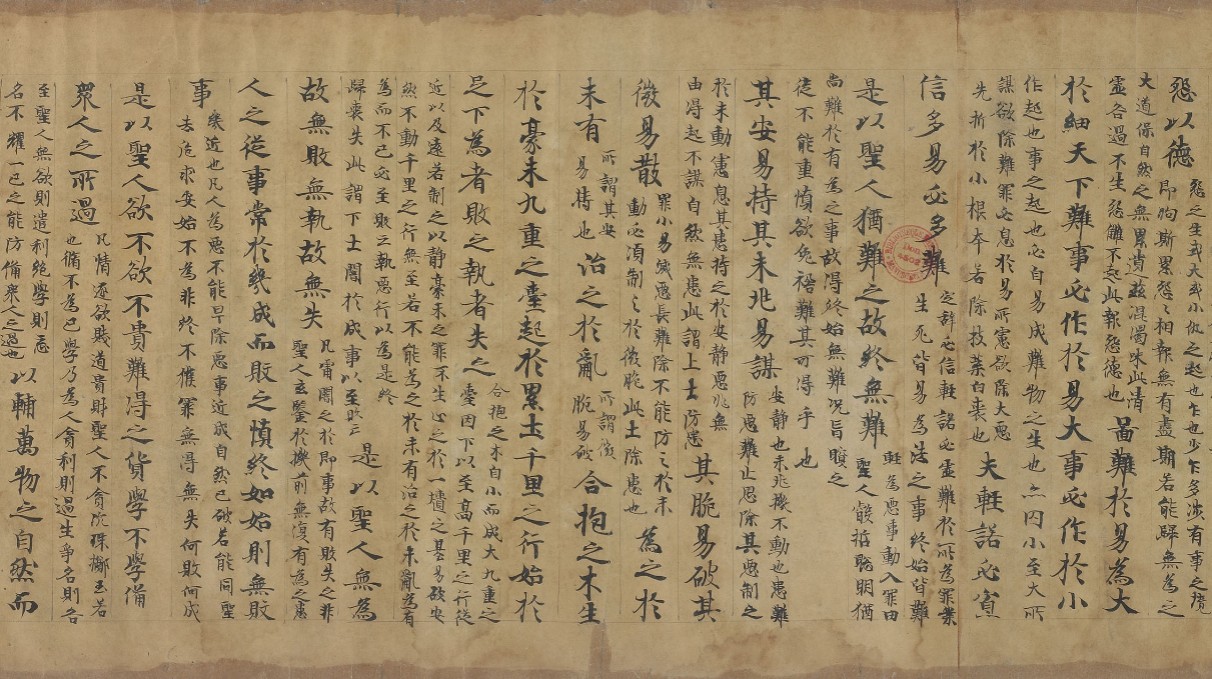 怨以德
怨之生或大或小仇之起也乍少乍多涉有事之境
即徇斯累怨〻相報無有盡期若能歸無為之
大道保自然之無累貴茲混濁味此清
靈各過不生怨讎不起此報怨德也
啚難於易為大
於細天下難事必作於易大事必作於小
作起也事之起也必自易成難物之生也亦因小至大所
謀欲除難罪必息於易所慮欲除大惡
先折於小根本若除枝葉自喪也
夫輕諾必寡
信多易必多難
定辭必信輕諾必虛難於所為罪業
生死皆易為法之事終始皆難
是以聖人猶難之故終無難
輕為惡事動入罪田
聖人叡哲聰明猶
尚難於有為之事故得終始無難況盲瞍之
徒不能重慎欲免禍難其可得乎也
其安易持其未兆易謀
安靜也未兆機不動也愚難
防惡難止思除其惡制之
於未動患息其患持之於安靜惡兆無
由得起不謀自然無患此謂上士防患
其脆易破其
微易散
罪小易滅惡長難除不能防之於未
動必須制之於微脆此士除患也
為之於
未有
所謂其安
易持也
治之於亂
所謂微
脆易破
合抱之木生
於豪末九重之臺起於累土千里之行始於
足下為者敗之執者失之
合抱之木自小而成大九重之
臺因下以至高千里之行從
近以及遠若制之以靜豪末之罪不生止之於一墻之基易破安
然不動千里之行無至若不能為之於未有治之於未亂為有
為而不已必至敗之執惡行以為是終
歸喪失此謂下士闇於成事以至敗之
是以聖人無為
故無敗無執故無失
凡當闇之於即事故有敗失之非
聖人玄鑒於機前無復有為之患
人之從事常於幾成而敗之慎終如始則無敗
事
幾近也凡人為惡不能早除惡事近成自然已破若能同聖
去危求安始不為非終不懼罪無得無失何敗何成
是以聖人欲不欲不貴難得之貨學不學備
眾人之所過
凡情逐欲賤道貴財聖人不貪沉珠擲玉若
也脩不為己學乃為人貪利則過生爭名則各
至聖人無欲則遣利絕學則忘
名不耀一己之能防備眾人之過也
以輔萬物之自然而